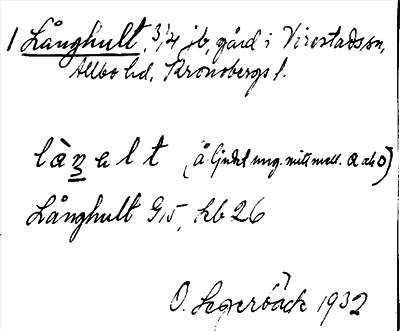 1 Långhult, 3/4 jb, gård i Virestads sn,
Allbo hd, Kronobergs l.
låŋ e l t (å-ljudet ung. mitt mell. a och o)
Långhult G, 5, kb 26
O. Segerbäck 1932